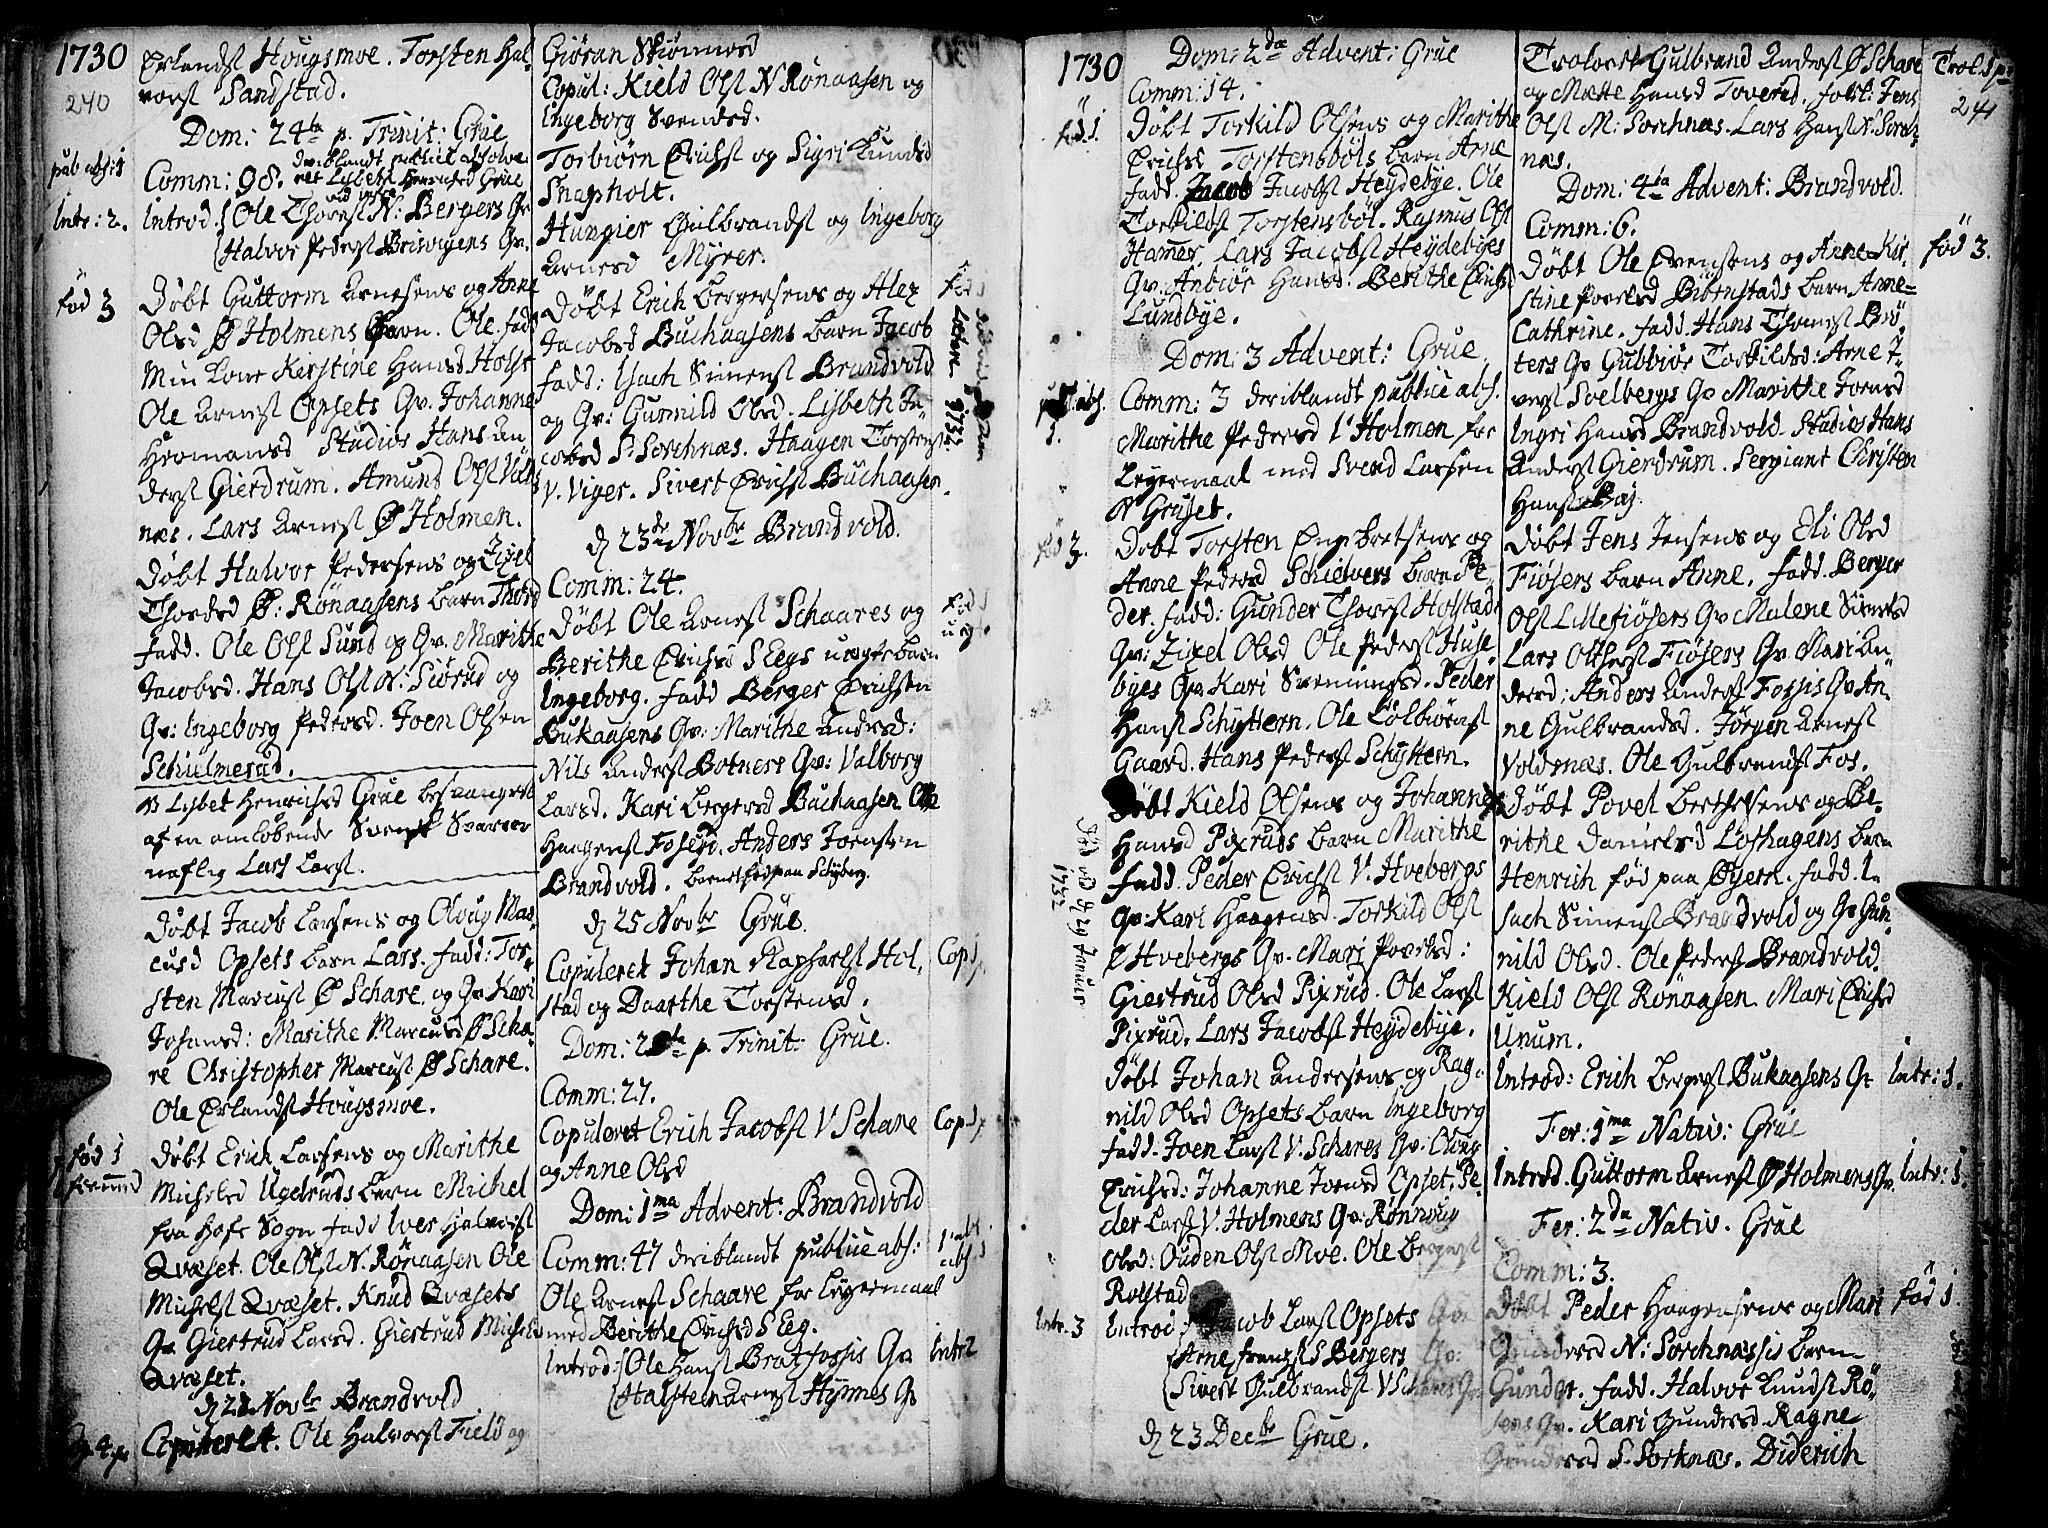 1730
240
Erlandst Hougsmoe. Torsten Hal-
vorst Sandstad.
Dom: 24ta p. Trinit: Grue
pub abs: 1
Comm: 98. deriblandt publice absolve-
ret Lisbeth Henrichsd Grue
vid infra
Intr: 2.
Introd: Ole Thorest N: Bergers Qv
Halvor Pederst Brisvigens Qv.
fød 3
Døbt Guttorm Arnesens og Anne
Olsd Ø Holmens barn. Ole. fadd
Min Kone Kirstine Hansd Holst
Ole Arnest Opsets Qv. Johanne
Hermansd Studios Hans An-
derst Gierdrum. Amund Olst
næs. Lars Arnest Ø Holmen.
Døbt Halvor Pedersens og Zizel
Thordsd Ø: Rønaasens barn Thord
fadd. Ole Olst Sund og Qv. Marithe
Jacobsd. Hans Olst N: Siørud og
Qv: Ingeborg Pedersd. Joen Olsen
Schulmerud.
NB Lisbet Henrichsd Grue besvangret
af en omløbende Svensk
naflig Lars Larst.
Døbt Jacob Larsens og Oloug Mar-
cusd Opsets barn Lars. fadd: Tor-
sten Marcust Ø Schare. og Qv Kari
Johansd: Marithe Marcusd Ø Scha-
re Christopher Marcust Ø Schare.
Ole Erlandst Hougsmoe.
fød 1
fremmed
Døbt Erich Larsens og Marithe
Michelsd Ugelruds barn Michel
fra Hofs Sogn fadd Iver Halvorst
Qvæset. Ole Olst N. Rønaasen Ole
Michelst Qvæset. Knud Qvæsets
Qv Giertrud Larsd. Giertrud Michelsd
Qvæset.
d 22 Novbr Brandvold
Cop. 4. p
Copuleret. Ole Halvorst Field og
Giøran Skiønnerd
Copul: Kield Olst N Rønaasen og
Ingeborg Svendsd.
Torbiørn Erichst og Sigri Knudsd
Snapholt.
Hungier Gulbrandst og Ingeborg
Arnesd Myrer.
Døbt Erich Bergersens og Alex
Jacobsd Buchaasens barn Jacob
fadd: Isach Simenst Brandvold
og Qv: Gunnild Olsd. Lisbeth Ja-
cobsd S: Sorchnæs. Haagen Torstenst
V. Viger. Sivert Erichst Buchaasen.
d 23de Novbr Brandvold.
Comm: 24.
fød 1
uegte
Døbt Ole Arnest Schaares og
Berithe Erichsd S Eegs uægte barn
Ingeborg. fadd Berger Erichsten
Bukaasens Qv: Marithe Andersd:
Nils Anderst Botners Qv: Valborg
Larsd. Kari Bergersd Buchaasen Ole
Haagenst Foserd. Anders Joensten
Brandvold. barnet fød paa Schyberg.
d 25 Novbr Grue.
Copuleret Johan Raphaelst Hol-
stad og Daarthe Torstensd.
Cop 1 p.
Dom: 25ta p. Trinit: Grue.
Comm: 27.
Copuleret Erich Jacobst V Schare
og Anne Olsd
Cop 1 p.
Dom: 1ma Advent: Brandvold
Comm: 47 deriblandt publice abs:
Ole Arnest Schaare for Leyermaal
med Berithe Erichsd S Eeg.
Introd: Ole Hanst Bratfossis Qv
Halsten Arnest Hymes Qv
Intr 2
1730
Dom: 2da Advent: Grue
Comm: 14.
fød 1.
Døbt Torkild Olsens og Marithe
Erichsd Torstensbøls barn Arne
fadd. Jacob Jacobst Heydebye. Ole
Torkildst Torstensbøl. Rasmus Olst
Hamer. Lars Jacobst Heydebyes
Qv. Anbiør Hansd. Berithe Erichsd
Lundbye.
Dom: 3 Advent: Grue.
publ: abs.
1.
Comm: 3 deriblandt publice abs.
Marithe Pedersd L Holmen for
Leyermaal med Svend Larsen
N Gruset.
fød 3.
Døbt Torsten Engebretsens og
Anne Pedersd Schielvers barn Pe-
der. fadd: Gunder Thorest Hofstads
Qv: Zizel Olsd Ole Pederst Huse-
byes Qv Kari Svenningsd. Peder
Hanst Schyttern. Ole Colbiørnst
Gaard. Hans Pederst Schyttern.
Døbt Kield Olsens og Johanne
Hansd Pixruds barn Marithe
fadd. Peder Erichst V. Hvebergs
Qv: Kari Haagensd. Torkild Olst
Ø Hvebergs Qv. Mari Povelsd:
Giertrud Olsd Pixrud. Ole Larst
Pixrud. Lars Jacobst Heydebye.
Døbt Johan Andersens og Rag-
nild Olsd Opsets barn Ingeborg
fadd. Joen Larst V. Schares Qv. Oloug
Erichsd: Johanne Joensd Opset. Pe-
der Larst V. Holmens Qv: Rønnoug
Olsd: Ouden Olst Moe. Ole Bergerst
Rolstad.
Intr. 3
Introd Jacob Larst Opsets Qv
Arne Franzst S Bergers Qv:
Sivert Gulbrandst V Schares Qv
d 23 Decbr Grue.
Troloved Gulbrand Anderst Ø Schare
og Mætte Hansd Toverud. forl: Jens
Olst M: Sorchnæs. Lars Hanst N: Sorch-
næs.
Trol. 1 p.
241
Dom: 4ta Advent: Brandvold.
Comm: 6.
fød 3.
Døbt Ole Evensens og Anne Kir-
stine Povelsd Biørnstads barn Anne-
Cathrine. fadd. Hans Thomest Brø-
ters Qv Gubbiør Torkildsd: Arne I-
verst Solbergs Qv Marithe Joensd
Ingri Hansd Brandvold. Studios Hans
Anderst Gierdrum. Sergiant Christen
Hanst Baj.
Døbt Jens Jensens og Eli Olsd
Fiøsers barn Anne. fadd. Berger
Olst Lillefiøsers Qv Malene Siversd
Lars Olthest Fiøsers Qv. Mari An-
dersd: Anders Anderst Fossis Qv An-
ne Gulbrandsd. Jørgen Arnest
Voldsnæs. Ole Gulbrandst Fos.
Døbt Povel Berthelsens og Be-
rithe Danielsd Løshagens barn
Henrich fød paa Øyern. fadd. I-
sach Simenst Brandvold og Qv Gun-
nild Olsd. Ole Pederst Brandvold.
Kield Olst Rønaasen. Mari Erichsd
Unum.
Introd: Erich Bergerst Bukaasens Qv
Intr: 1.
Fer: 1ma Nativ: Grue
Introd. Guttorm Arnest Ø Holmens Qv.
Intr: 1.
Fer: 2da Nativ. Grue
Comm: 3.
fød 1.
Døbt Peder Haagensens og Mari
Gundersd N: Sorchnæssis barn
Gunder. fadd. Halvor Knudst Rø-
sens Qv. Kari Gundersd. Ragne
Gundersd S. Sorknæs. Diderich